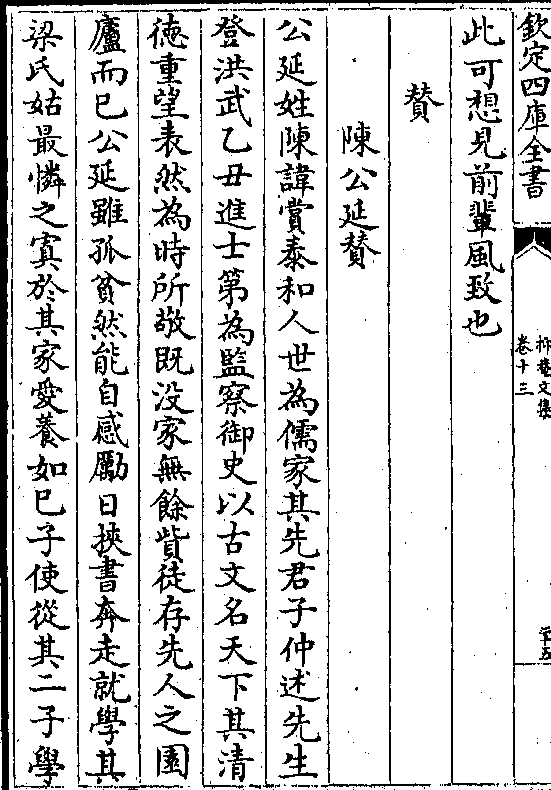 欽定四庫全書
卷十三
此可想見前輩風致也
贊
陳公延贊
公延姓陳諱賞泰和人世為儒家其先君子仲述先生
登洪武乙丑進士第為監察御史以古文名天下其清
徳重望表然為時所敬既没家無餘貲徒存先人之園
廬而已公延雖孤貧然能自感勵日挾書奔走就學其
梁氏姑最憐之寘於其家愛養如已子使從其二子學